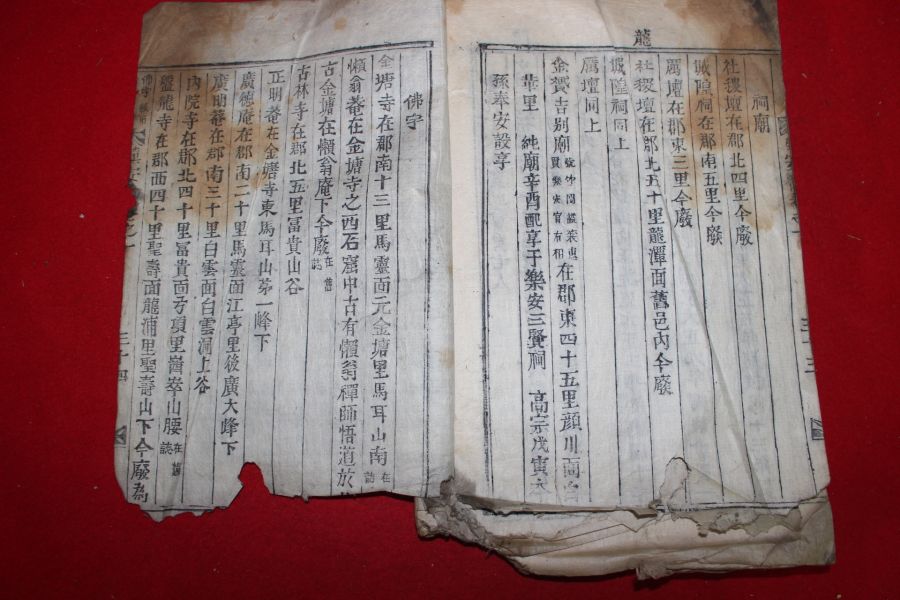 龍
祠廟
社稷壇在郡北四里今廢
城隍祠在郡南五里今廢
厲壇在郡東三里今廢
社稷壇在郡北五十里龍潭面舊邑內今廢
城隍祠同上
厲壇同上
金賀吉別廟 在郡東四十五里顔川面台
華里 純廟辛酉配享于樂安三賢祠 高宗戊寅本
孫奉安設享
佛宇
金塘寺在郡南十三里馬靈面元金塘里馬耳山南在誌
懶翁菴在金塘寺之西石窟中古有懶翁禪師悟道於
古金塘在懶翁庵下今廢在舊誌
古林寺在郡北五里富貴山谷
正明菴在金塘寺東馬耳山第一峰下
廣德庵在郡南二十里馬靈面江亭里後廣大峰下
廣明菴在郡南三十里白雲面白雲洞上谷
內院寺在郡北四十里富貴面方項里 山腰在舊誌
盤龍寺在郡西四十里聖壽面龍浦里聖壽山下今廢為
佛宇
三十四